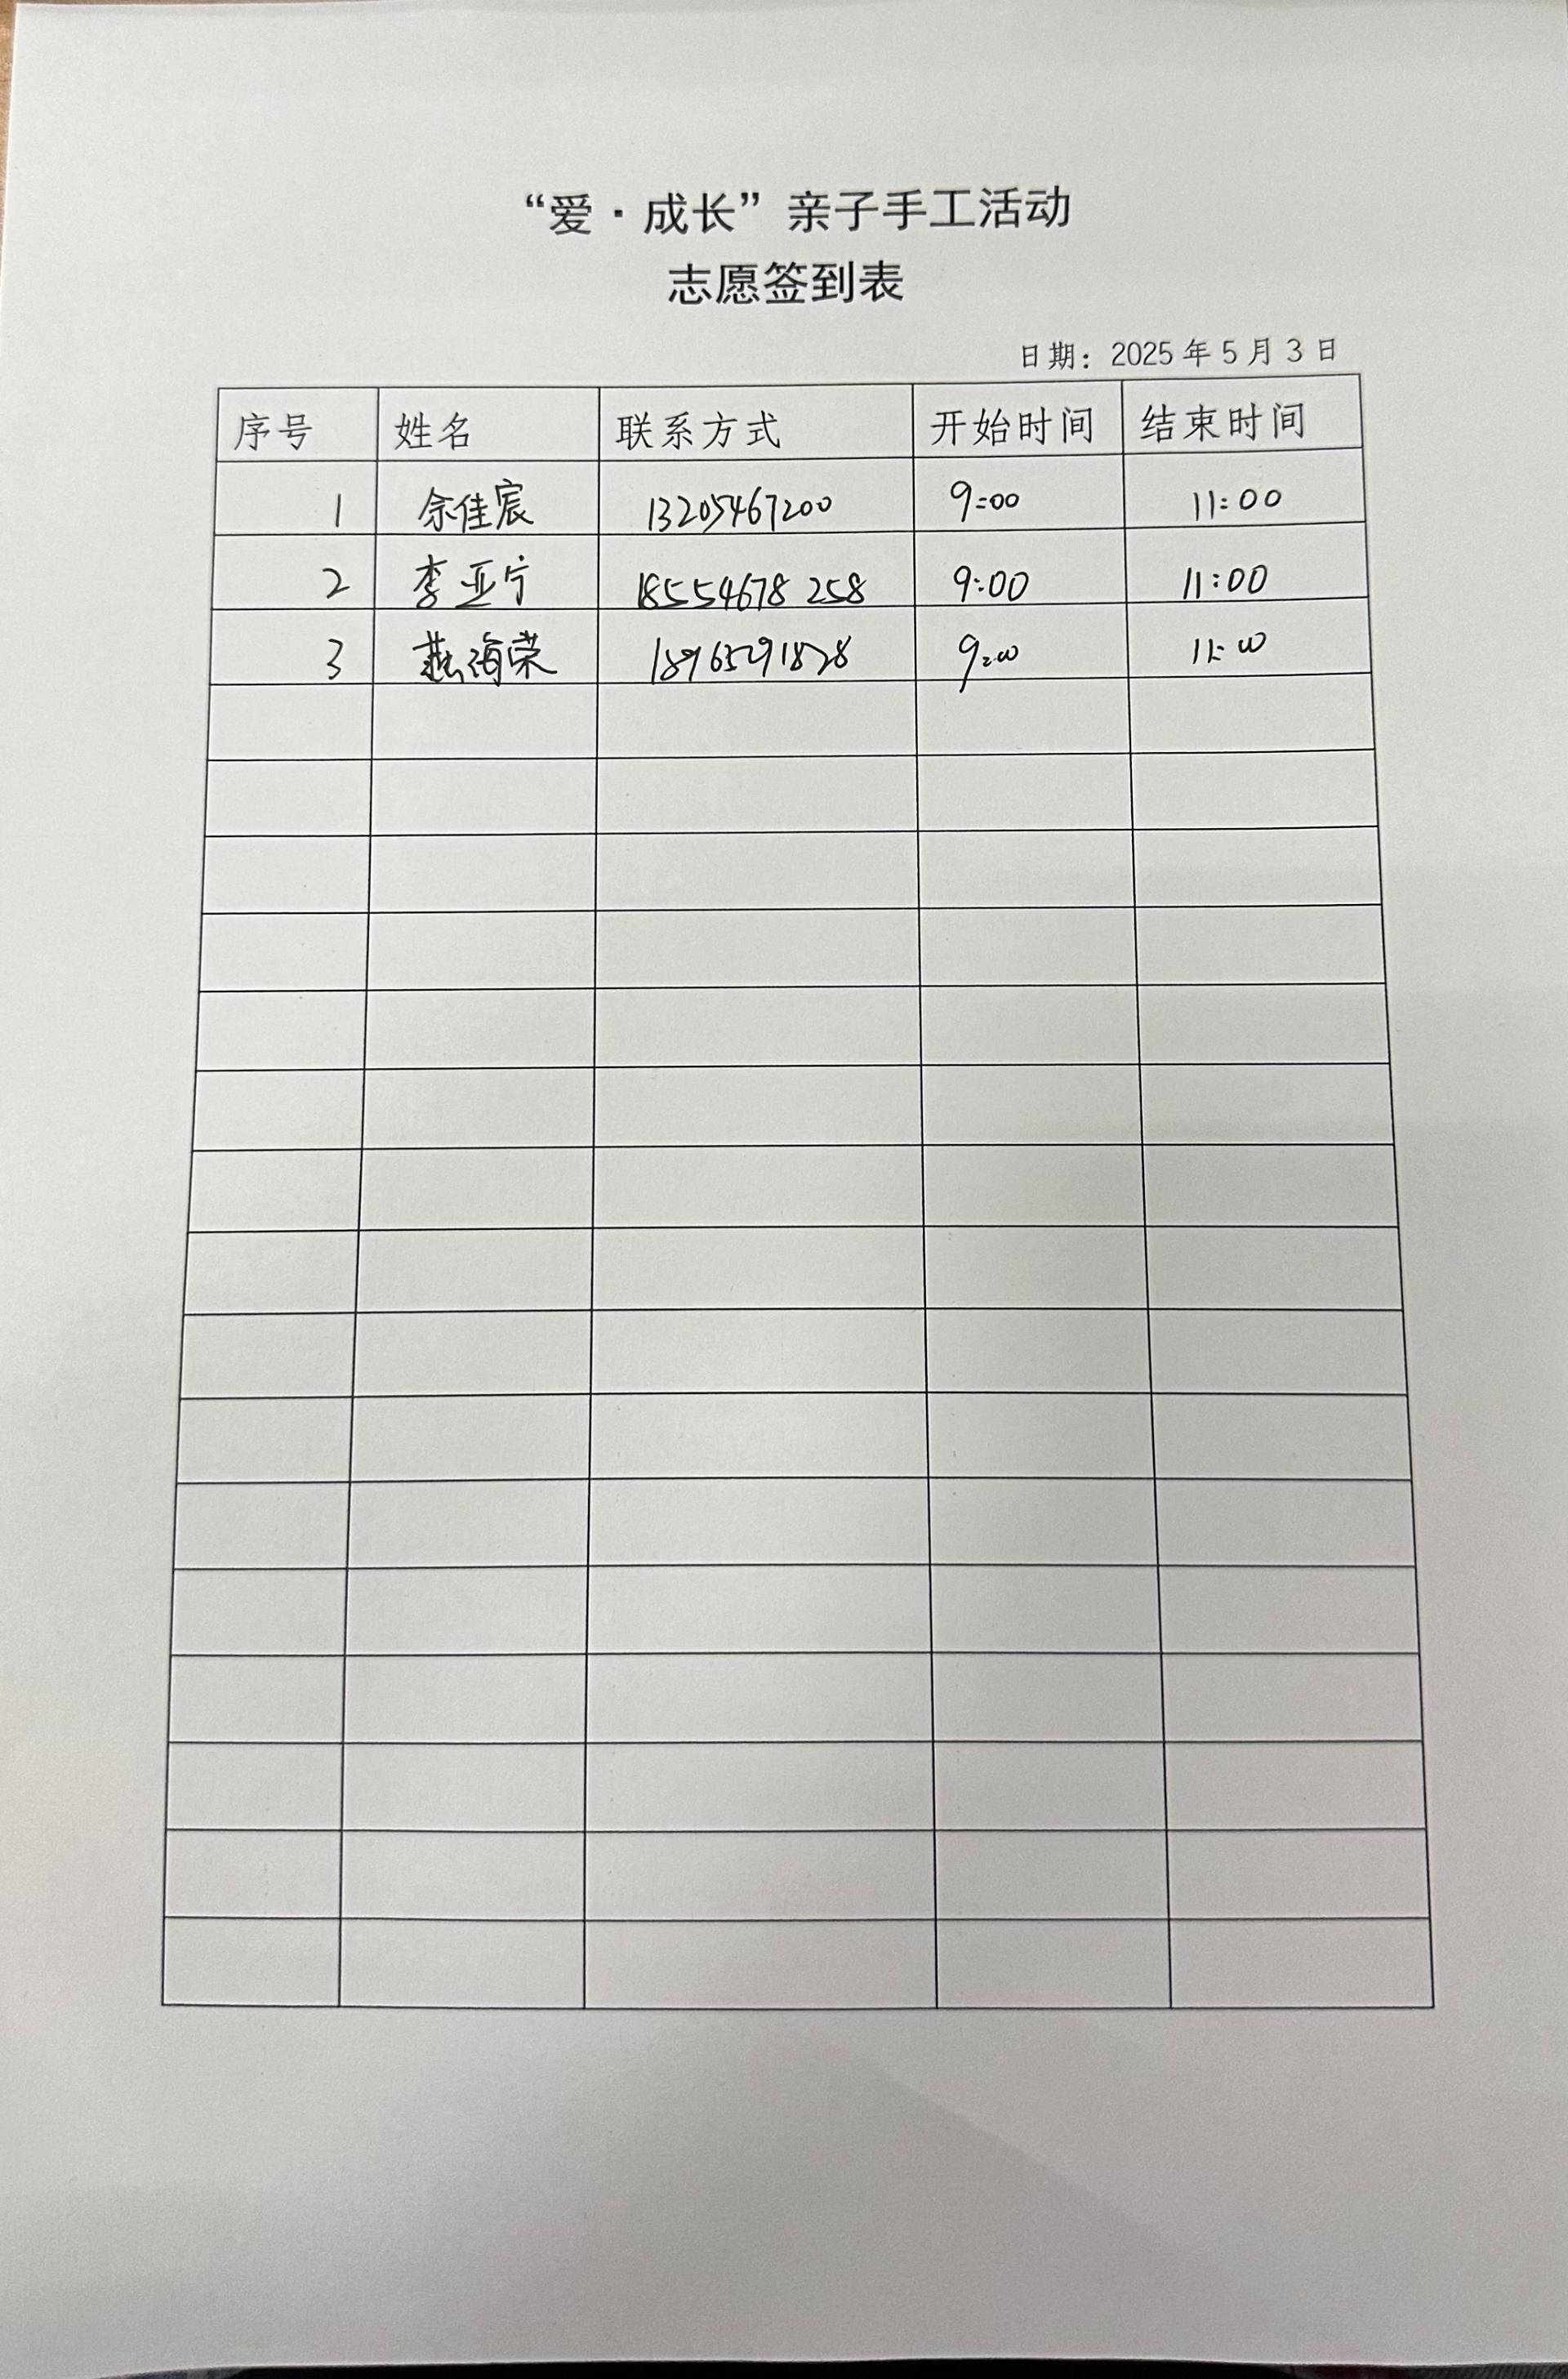 “爱·成长”亲子手工活动
志愿签到表
日期：2025年5月3日
序号 姓名 联系方式 开始时间 结束时间
1 余佳宸 13205467200 9:00 11:00
2 李亚宁 18554678258 9:00 11:00
3 燕海荣 18965291828 9:00 11:00